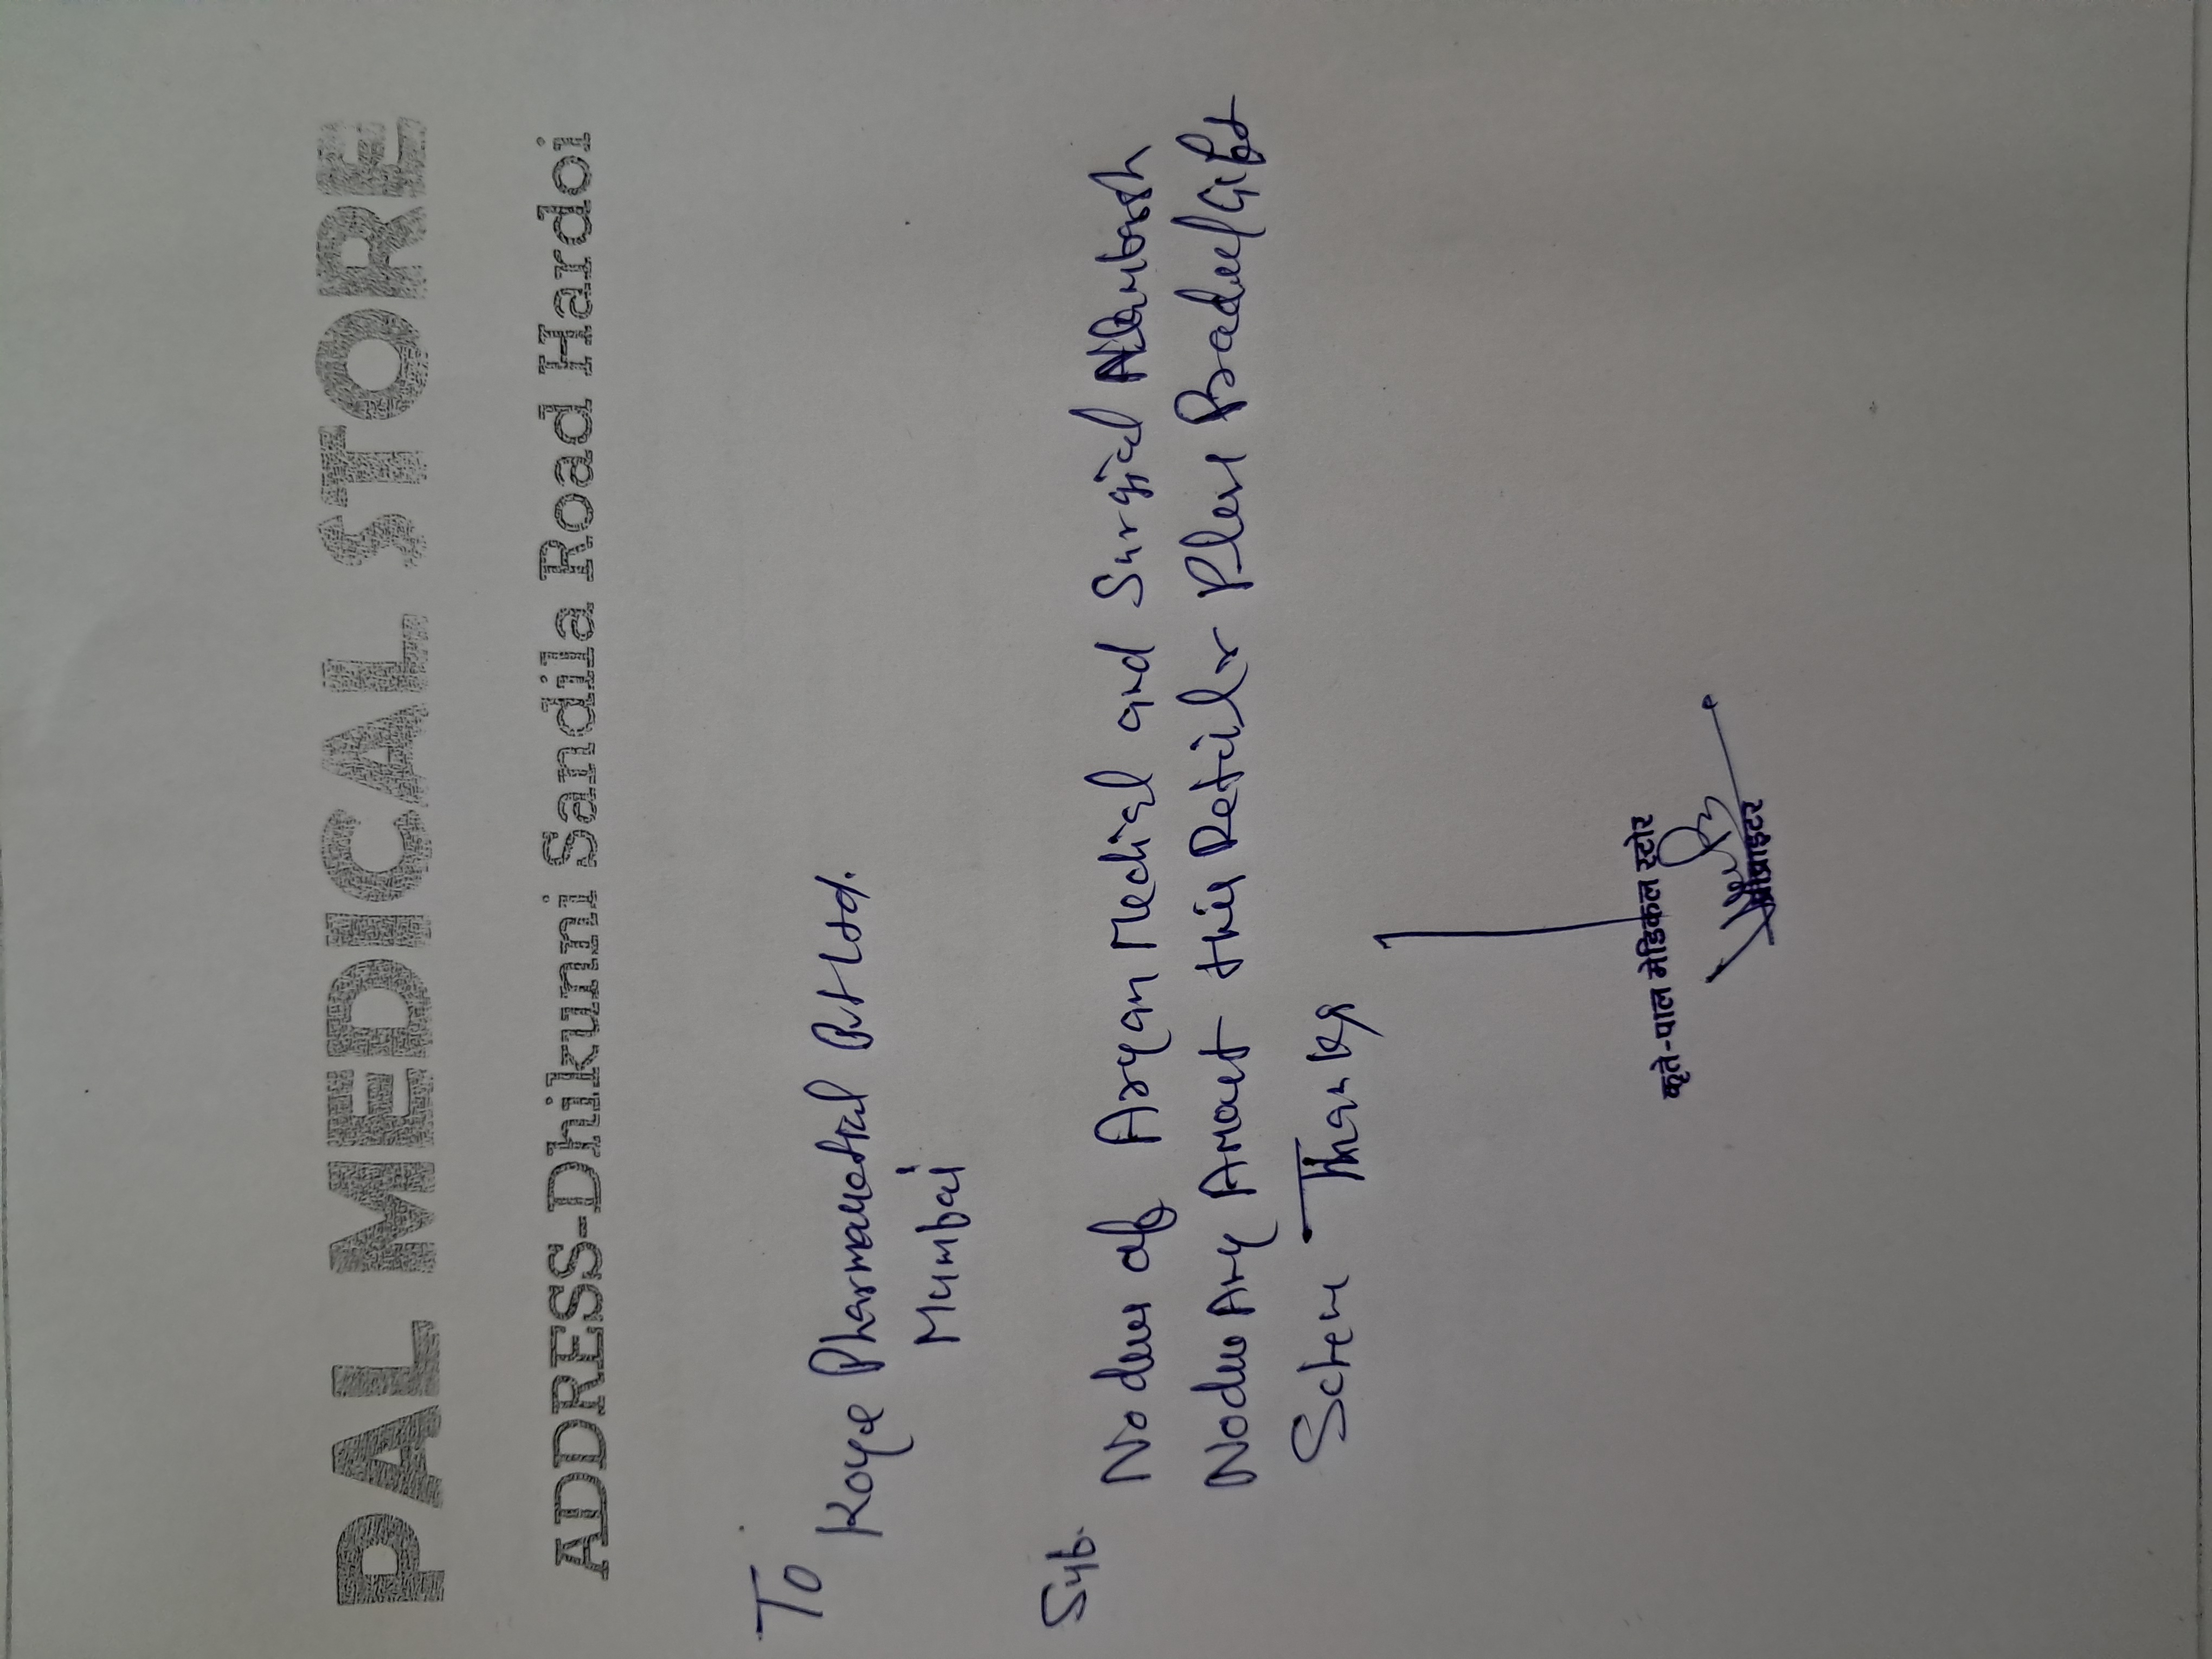 PAL MEDICAL STORE
ADDRESS-Dhikunni Sandila Road Hardoi
To
Koye Pharmaceutical Pvt Ltd.
Mumbai
Sub.
No dues of Aryan Medical and Surgical
Nodue Any Amount this Retailer Gift
Thanks
कृते-पाल मेडिकल स्टोर
प्रोप्राइटर